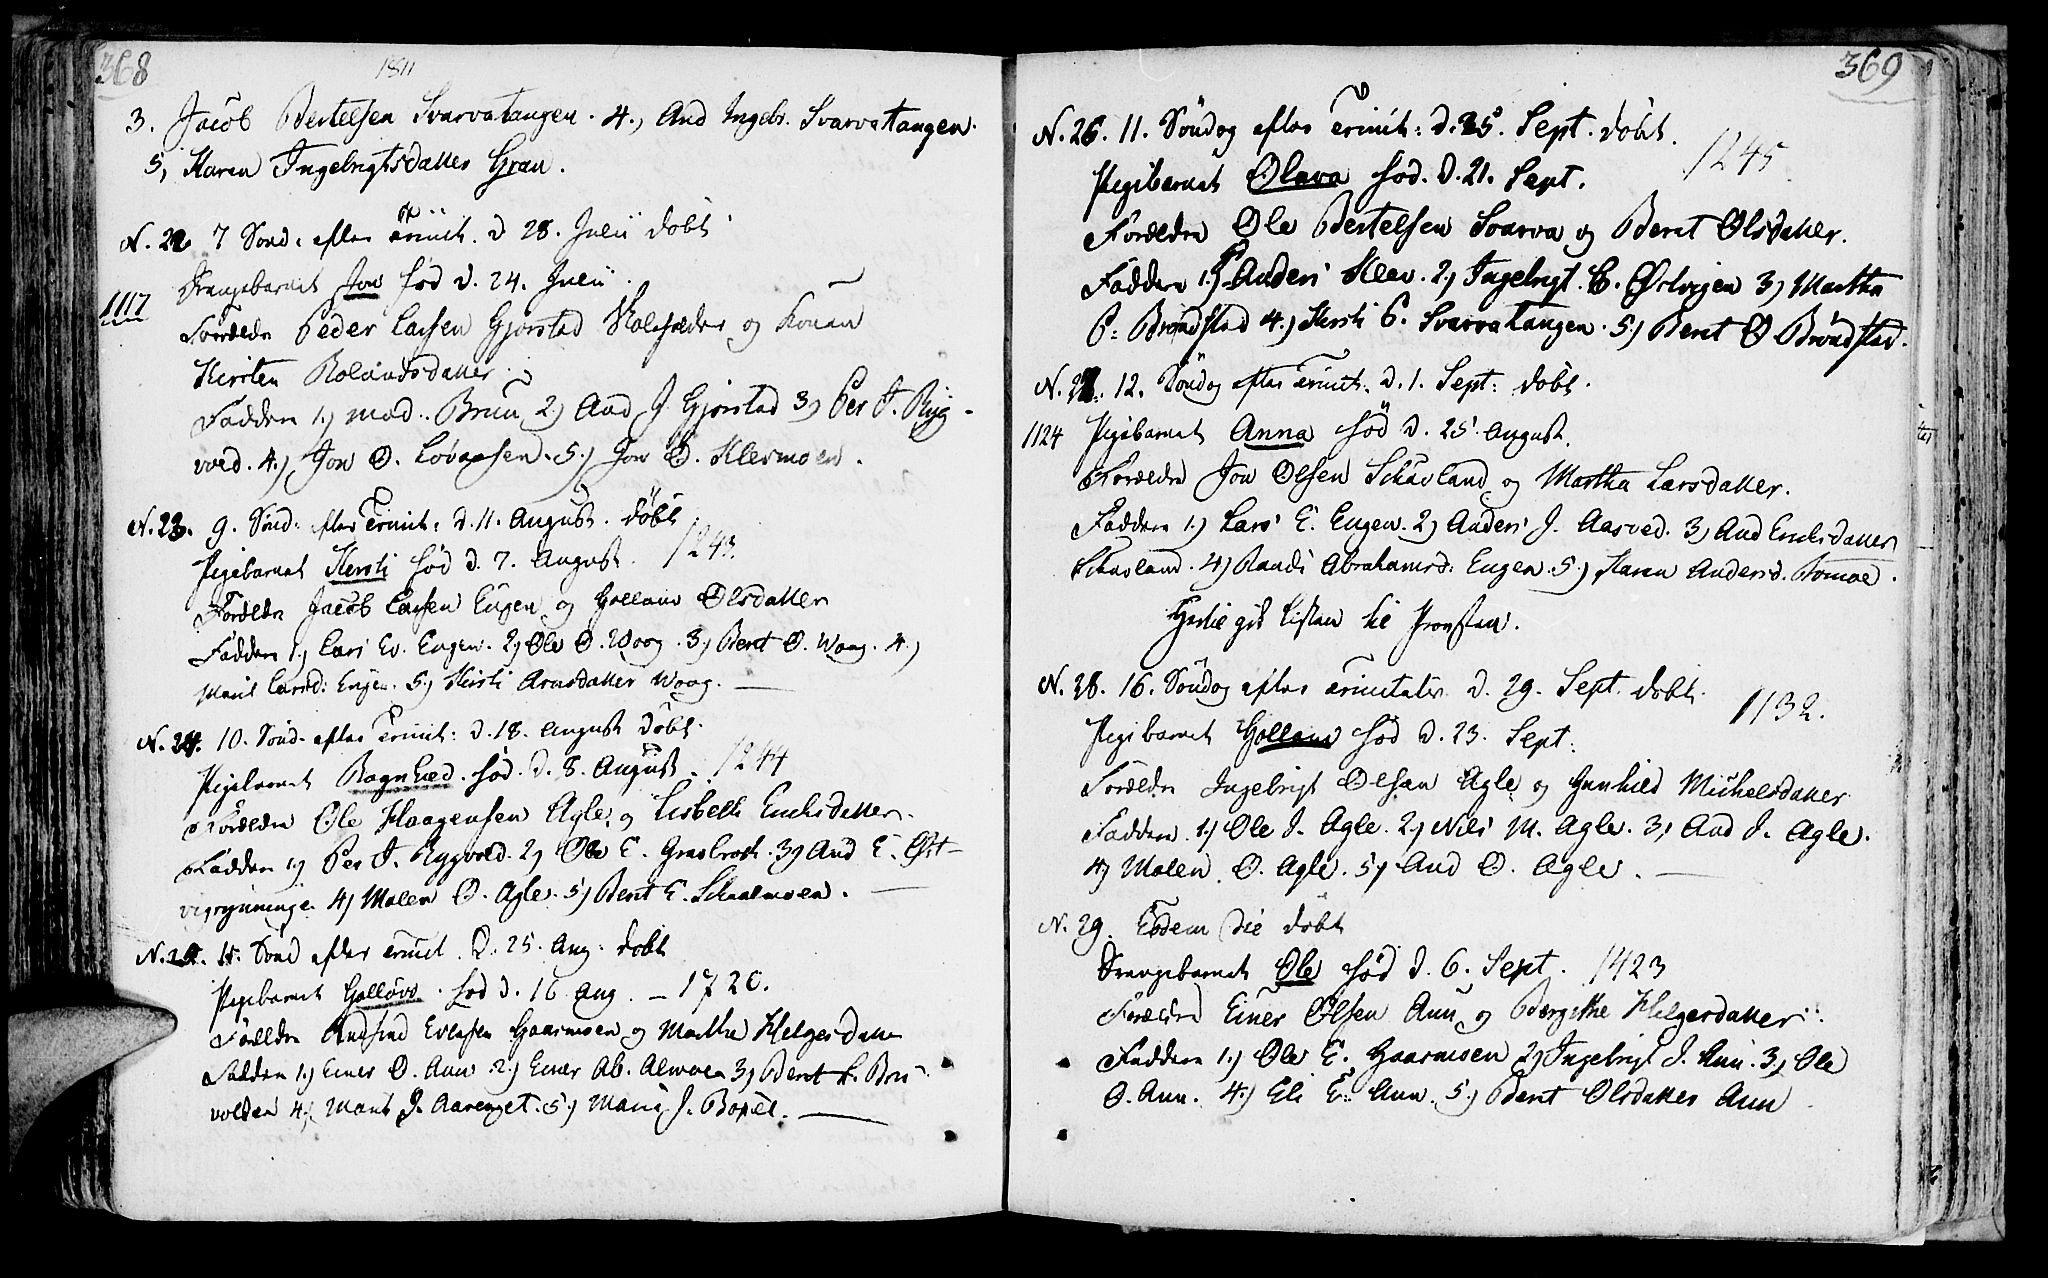 368
1811
3. Jacob Bertelsen Svarvatangen. 4.) And Ingebr. Svarvatangen.
5, Karen Ingebrigtsdatter Grau.
N. 22 7 Sønd. efter Trinit. d 28. Julii døbt
Drengebarnet Jon fød d. 24. Julii.
1117
Forældre Peder Larsen Gjørstad og Konen
Kirsten Rolandsdatter.
Faddere 1.) mad. Brun 2.) And J. Gjørstad 3) Per J. Ryg-
vold. 4.) Jon O. 5.) Jon O. Klermoen.
N. 23. 9. Sønd: efter Trinit: d. 11. August. døbt
Pigebarnet Kersti fød d. 7. August. 1243.
Forældre Jacob Larsen Eugen og Gollaug Olsdatter
Faddere 1.) Lars Ev. Eugen. 2) Ole O. Woog. 3) Beret O. Waag. 4.)
Marit Larsd: Engen. 5.) Kirsti Arnsdatter Woog.
N. 24. 10. Sønd. efter Trinit: d. 18. august døbt
Pigebarnet Ragnhild. fød. d. 8. August. 1244
Forældre Ole Haagensen Agle og Lisbeth Erichsdatter.
Faddere 1) Per J. Rygvold. 2) Ole E. 3) And E. Øst-
vigrynninge 4) Malen O. Agle. 5) Beret E. Schaalmoen.
N. 25. 11. Sønd efter Trinit. d. 25. Aug: døbt
Pigebarnet Golløvs. fød d. 16 Aug. - 1726.
Forældre Evensen Gaarmoen og Martha Helgesdatter
Faddere 1.) Einer O. Aun 2.) Einer Ab. Almoen 3) Beret L. Brü-
volden 4.) Marit J. Aarenget. 5.) Marit J. Bopel.
369
N. 26. 11. Søndag efter Trinit: d. 25. Sept. døbt.
1245
Pigebarnet Olava fød. d. 21. Sept.
Forældre Ole Bertelsen Svarva og Beret Olsdatter.
Faddere 1.) Anders Klev. 2) Ingebrigt E. Østvigen 3) Martha
P: Brøndstad 4.) Kersti P. Svarvatangen. 5.) Beret O Brøndstad.
N. 27. 12. Søndag efter Trinit: d. 1. Sept: døbt.
1124 Pigebarnet Anna fød d. 25. August.
Forældre Jon Olsen Schavland og Martha Larsdatter.
Faddere 1.) Lars E. Eugen. 2) Anders J. Aasved. 3) And Erichsdatter
Schavland. 4) Randi Abrahamsd. Eugen. 5.) Karen Andersd. Tomoe.
Hertil gik Listen til Provsten.
N. 28. 16. Søndag efter Trinitatis d. 29. Sept. døbt.
1132.
Pigebarnet Gollaug fød d. 23. Sept:
Forældre Ingebrigt Olsen Agle og Gunhild Michelsdatter
Faddere 1.) Ole J. Agle. 2.) Nils M. Agle. 3) And J. Agle.
4) Malen O. Agle. 5) And O. Agle.
N. 29. Eodem die døbt
Drengebarnet Ole fød d. 6. Sept. 1423
Forældre Einer Olsen Aun og Bergithe Helgesdatter.
Faddere 1.) Ole E. Gaarmoen 2) Ingebrigt J. Aun. 3) Ole
O. Aun. 4.) Eli E. Aun. 5.) Beret Olsdatter Aun